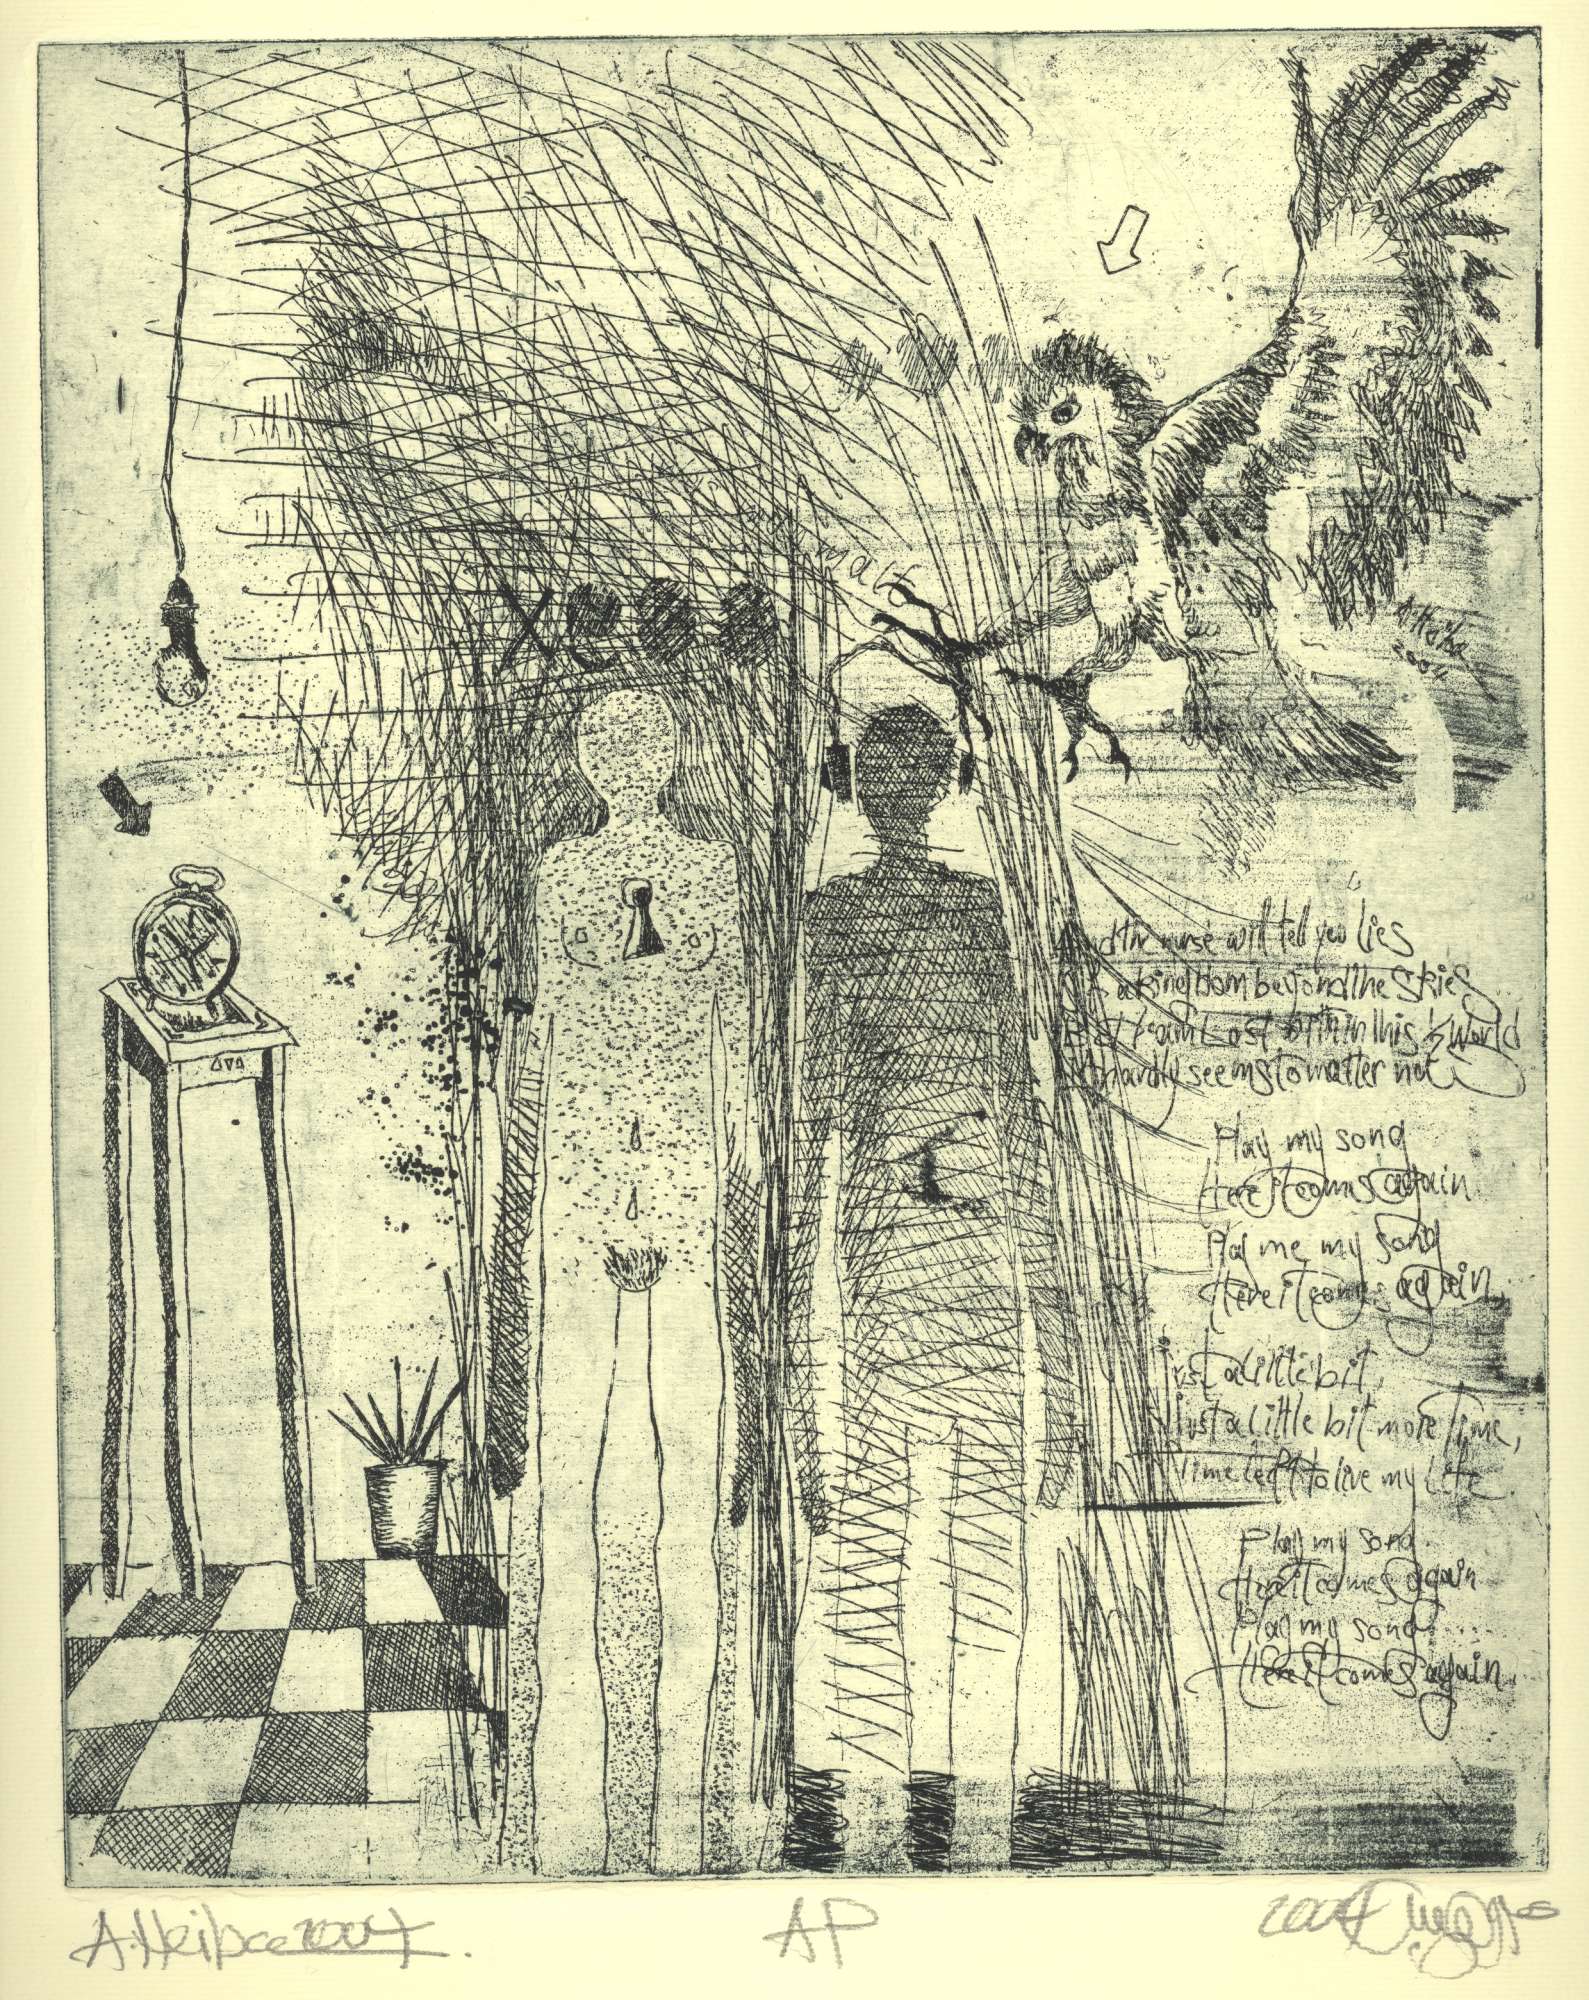 A.Heiba
2004
And the nurse will tell you lies
a kingdom beyond the skies
But I am Lost within this ½ World
hardly seems to matter not
Play my song
Here it comes again
Play me my song
Here it comes again.
Just a little bit,
Just a little bit more Time,
Time left to live my Life.
Play my song
Here it comes again
Play my song
Here it comes again.
A.Heiba 2004.
AP
2004